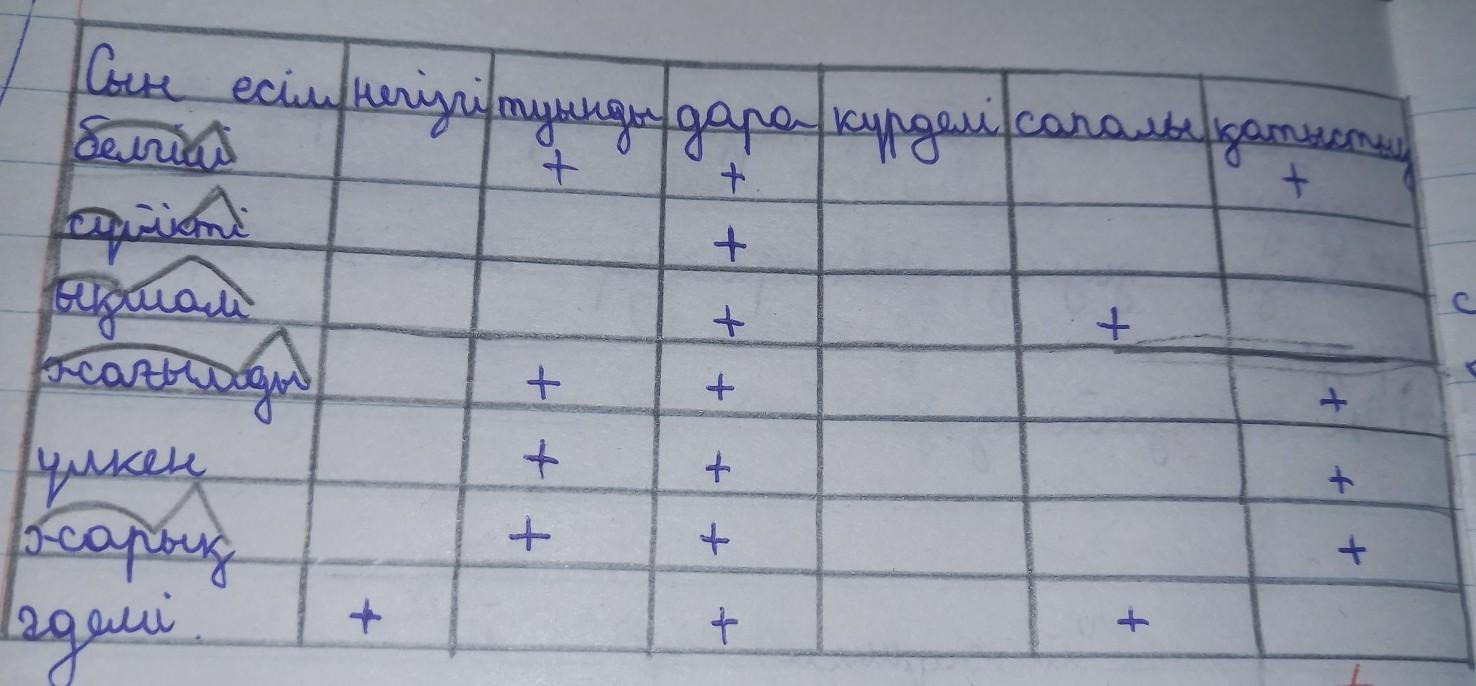 Сын есім негізгі туынды дара күрделі сапалы қатыстық
белгілі + + +
сүйікті +
ықшам + +
жағымды + + +
үлкен + + +
жарық + + +
әдемі. + + +